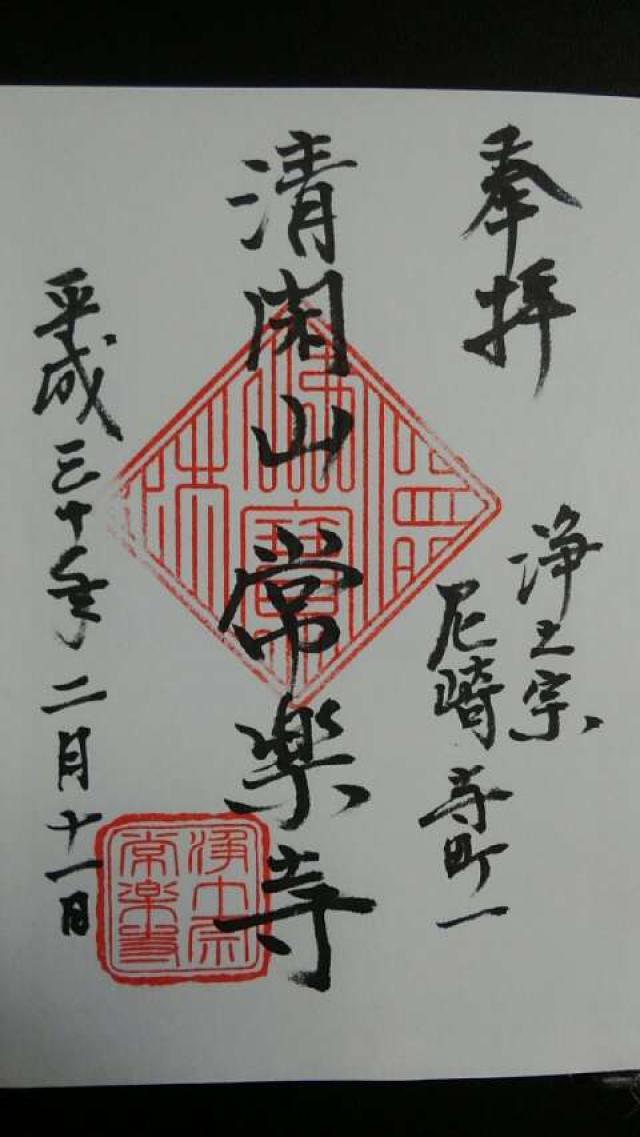 奉拝
浄土宗
尼崎 寺町一
清閑山 常楽寺
平成三十年二月十一日
浄土宗
常楽寺